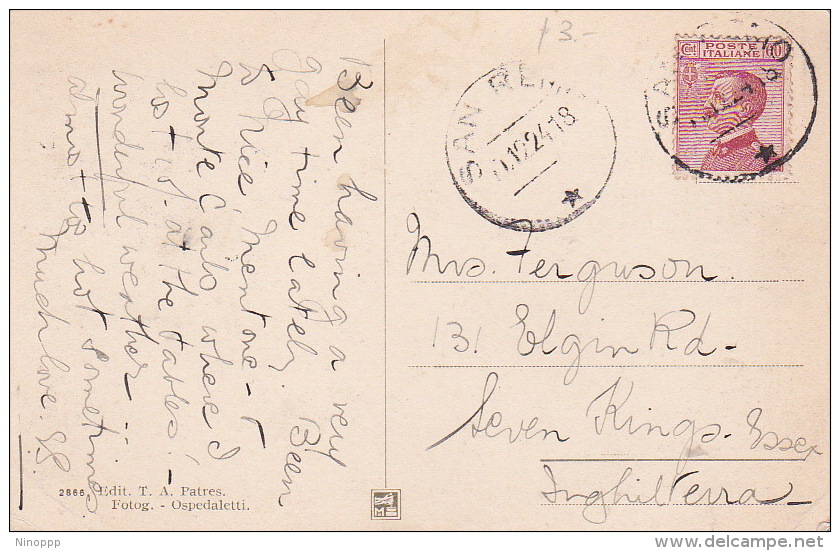 Been having a very
gay time lately. Been
to Nice, Mentone - &
Monte Carlo where I
lost £5. at the tables! -
wonderful weather -
almost too hot sometimes
Much love.
2866 Edit. T. A. Patres.
Fotog. - Ospedaletti.
/3.-
SAN REMO
.12.24.18
Cent 60
POSTE
ITALIANE
Mrs. Ferguson.
131 Elgin Rd -
Seven Kings. Essex
Inghilterra -
Ninocco
delcampe.net